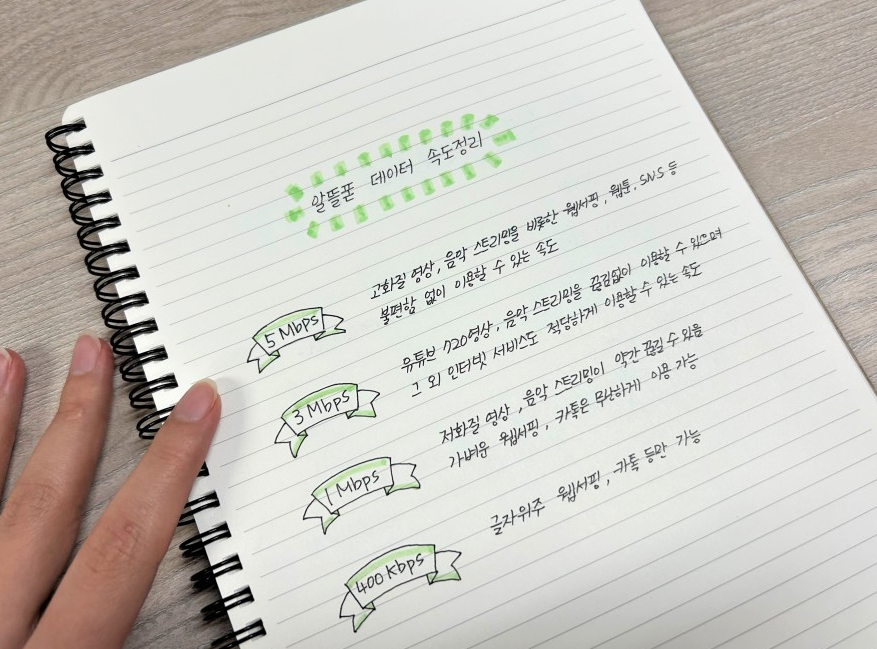 알뜰폰 데이터 속도정리
5 Mbps
고화질 영상, 음악 스트리밍을 비롯한 웹서핑, 웹툰, SNS 등
불편함 없이 이용할 수 있는 속도
3 Mbps
유튜브 720영상, 음악 스트리밍을 끊김없이 이용할 수 있으며
그 외 인터넷 서비스도 적당하게 이용할 수 있는 속도
1 Mbps
저화질 영상, 음악 스트리밍이 약간 끊길 수 있음
가벼운 웹서핑, 카톡은 무난하게 이용 가능
400 Kbps
글자위주 웹서핑, 카톡 등만 가능